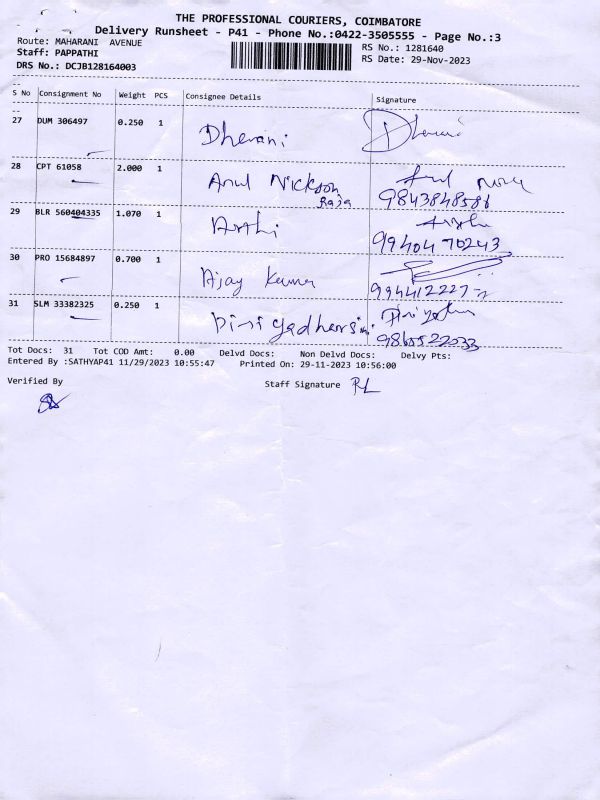 THE PROFESSIONAL COURIERS, COIMBATORE
Delivery Runsheet - P41 - Phone No.:0422-3505555 - Page No.:3
Route: MAHARANI AVENUE RS No.: 1281640
Staff: PAPPATHI RS Date: 29-Nov-2023
DRS No.: DCJB128164003
S No Consignment No Weight PCS Consignee Details Signature
27 DUM 306497 0.250 1 Dherani
28 CPT 61058 2.000 1 Arul Nickson Raja 9843848586
29 BLR 560404335 1.070 1 Arthi 9940470243
30 PRO 15684897 0.700 1 Ajay Kumar
31 SLM 33382325 0.250 1 9865522033
Tot Docs: 31 Tot COD Amt: 0.00 Delvd Docs: Non Delvd Docs: Delvy Pts:
Entered By :SATHYAP41 11/29/2023 10:55:47 Printed On: 29-11-2023 10:56:00
Verified By Staff Signature